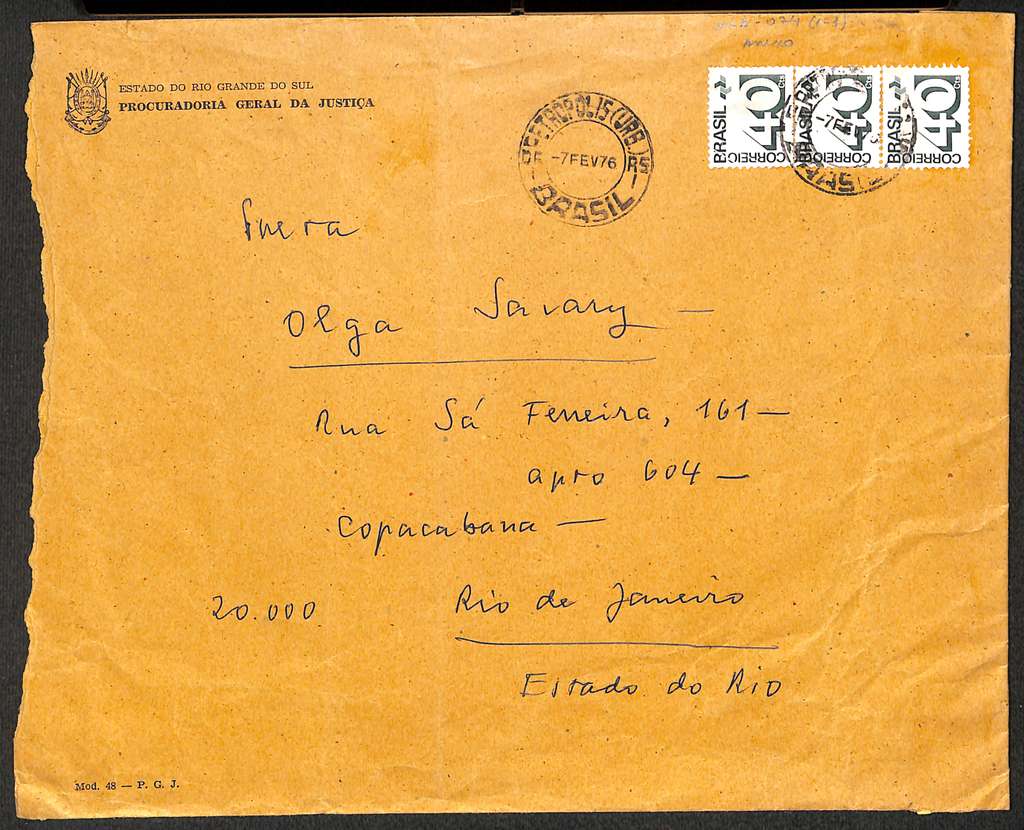 ANEXO
ESTADO DO RIO GRANDE DO SUL
PROCURADORIA GERAL DA JUSTIÇA
PETROPOLIS (URB.)
-7FEV76
RS
BRASIL
BRASIL 40 CORREIO
BRASIL 40 CORREIO
BRASIL 40 CORREIO
-7FEV
Olga Savary —
Rua Sá Ferreira, 161 —
apto 604 —
Copacabana —
20.000 Rio de Janeiro
Estado do Rio
Mod. 48 — P. G. J.